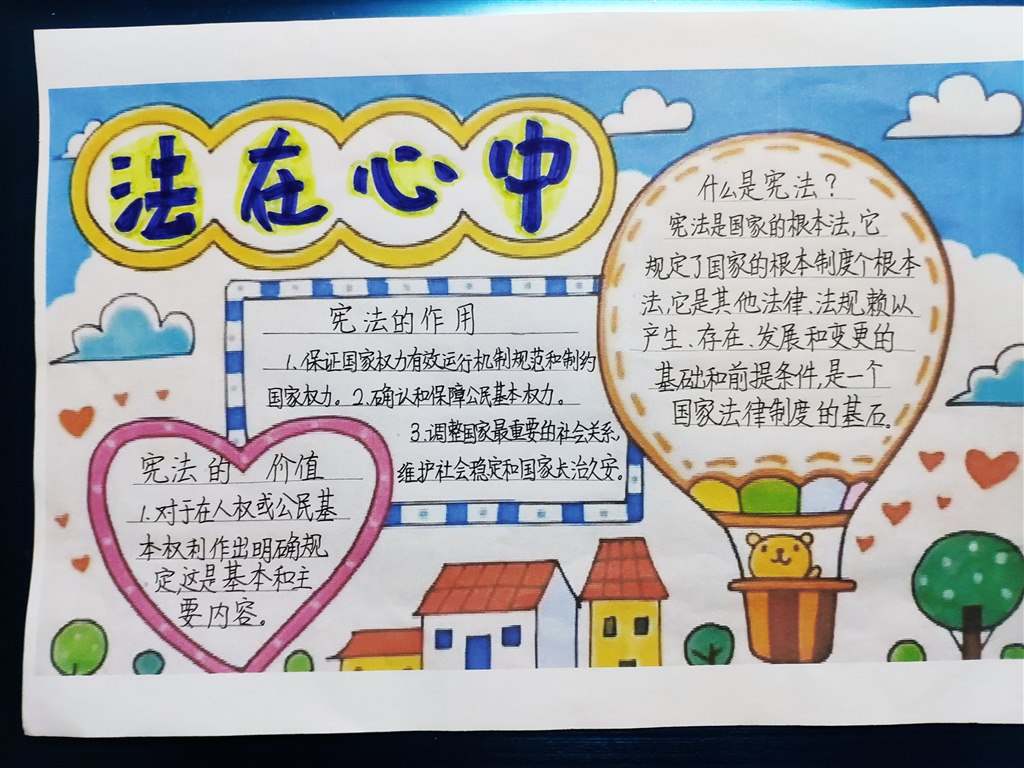 法在心中
什么是宪法?
宪法是国家的根本法,它
规定了国家的根本制度个根本
法,它是其他法律、法规赖以
产生、存在、发展和变更的
基础和前提条件,是一个
国家法律制度的基石。
宪法的作用
1.保证国家权力有效运行机制规范和制约
国家权力。2.确认和保障公民基本权力。
3.调整国家最重要的社会关系,
维护社会稳定和国家长治久安。
宪法的价值
1.对于在人权或公民基
本权利作出明确规
定,这是基本和主
要内容。